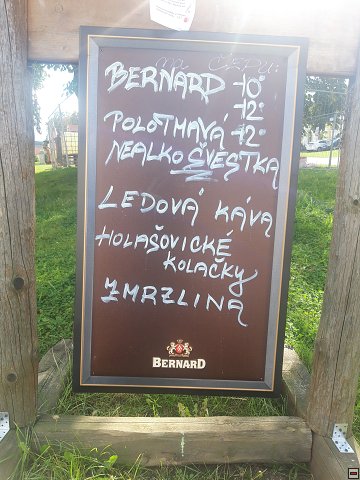 NA ČEPU:
BERNARD 10°
12°
POLOTMAVÁ 12°
NEALKO ŠVESTKA
LEDOVÁ KÁVA
HOLAŠOVICKÉ
KOLAČKY
ZMRZLINA
BERNARD